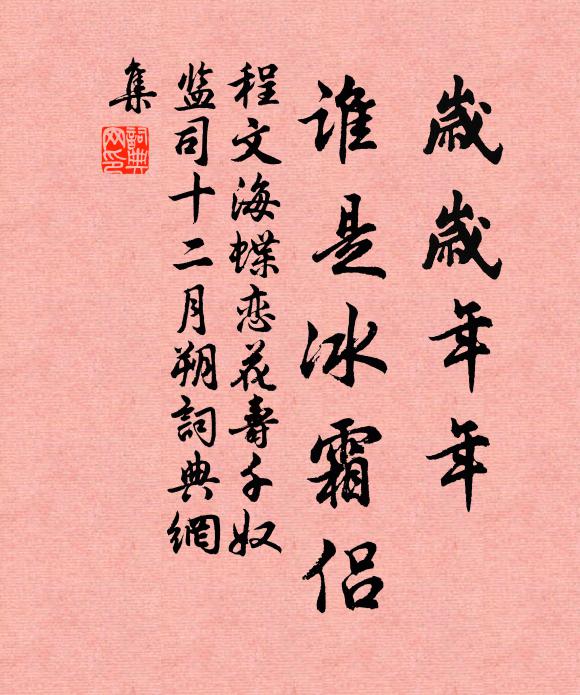 歲歲年年
誰是冰霜侶
程文海蝶恋花壽千奴
监司十二月朔詞典網
集
詞典
网印